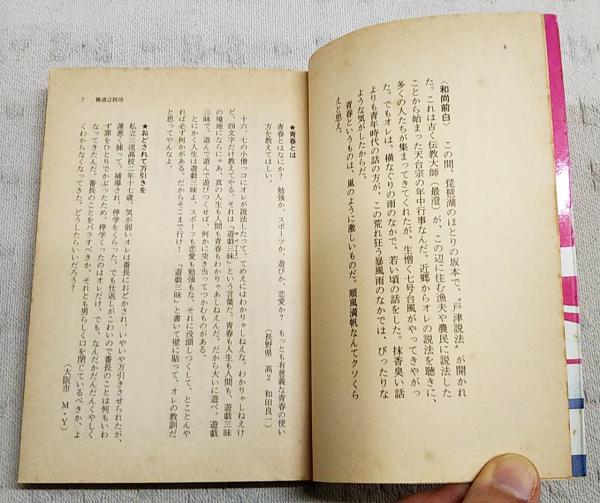 6
〈和尚前白〉 この間、琵琶湖のほとりの坂本で、〝戸津説法〟が開かれ
た。これは古く伝教大師(最澄)が、この辺に住む漁夫や農民に説法した
ことから始まった天台宗の年中行事なんだ。近郷からオレの説法を聴きに、
多くの人たちが集まってきてくれたが、生憎く七号台風がやってきやがっ
た。でもオレは、横なぐりの雨のなかで、若い頃の話をした。抹香臭い話
よりも青年時代の話の方が、この荒れ狂う暴風雨のなかでは、ぴったりな
ような気がしたからだ。
青春というものは、嵐のように激しいものだ。順風満帆なんてクソくら
えと思え。
7 極道辻説法
★青春とは
青春とはなにか? 勉強か、スポーツか、遊びか、恋愛か? もっとも有意義な青春の使い
方を教えてほしい。
(長野県 高2 和田良一)
十六、七の小僧ッコにオレが説法したって、てめえにはわかりゃしねえけ
ど、四文字だけ教えてやる。それは「遊戯三昧」という言葉だ。青春も人生も人間も、遊戯三昧
の境地にならにゃあ、真の人生も人間も青春もわかりゃあしねえんだ。だから大いに遊べ。遊戯
三昧で、遊んで遊んで遊びつくせば、何かに突き当ってつかむものがある。
とにかく人生は遊戯三昧よ、スポーツも恋愛も勉強もな、それに没頭しつくして、とことんや
れば必ず何かがある。だからそこまで行け! 「遊戯三昧」と書いて壁に貼って、オレの教訓だ
と思ってやんなよ。
★おどされて万引きを
私立三流高校二年十七歳。気が弱いオレは番長におどかされ、いやいや万引きさせられたが、
運悪く捕って、補導され、停学をくらった。でも仕返しがこわいので番長のことは何もいわ
ず罪をひとりでかぶったため、停学くったのはオレだけ。でも、なんだかだんだんくやしく
なってきたんだ。番長のことをバラすべきか、それとも男らしく口を閉じているべきか、よ
くわからなくなってきた。どうしたらいいんだろう?
(大阪市 M・Y)